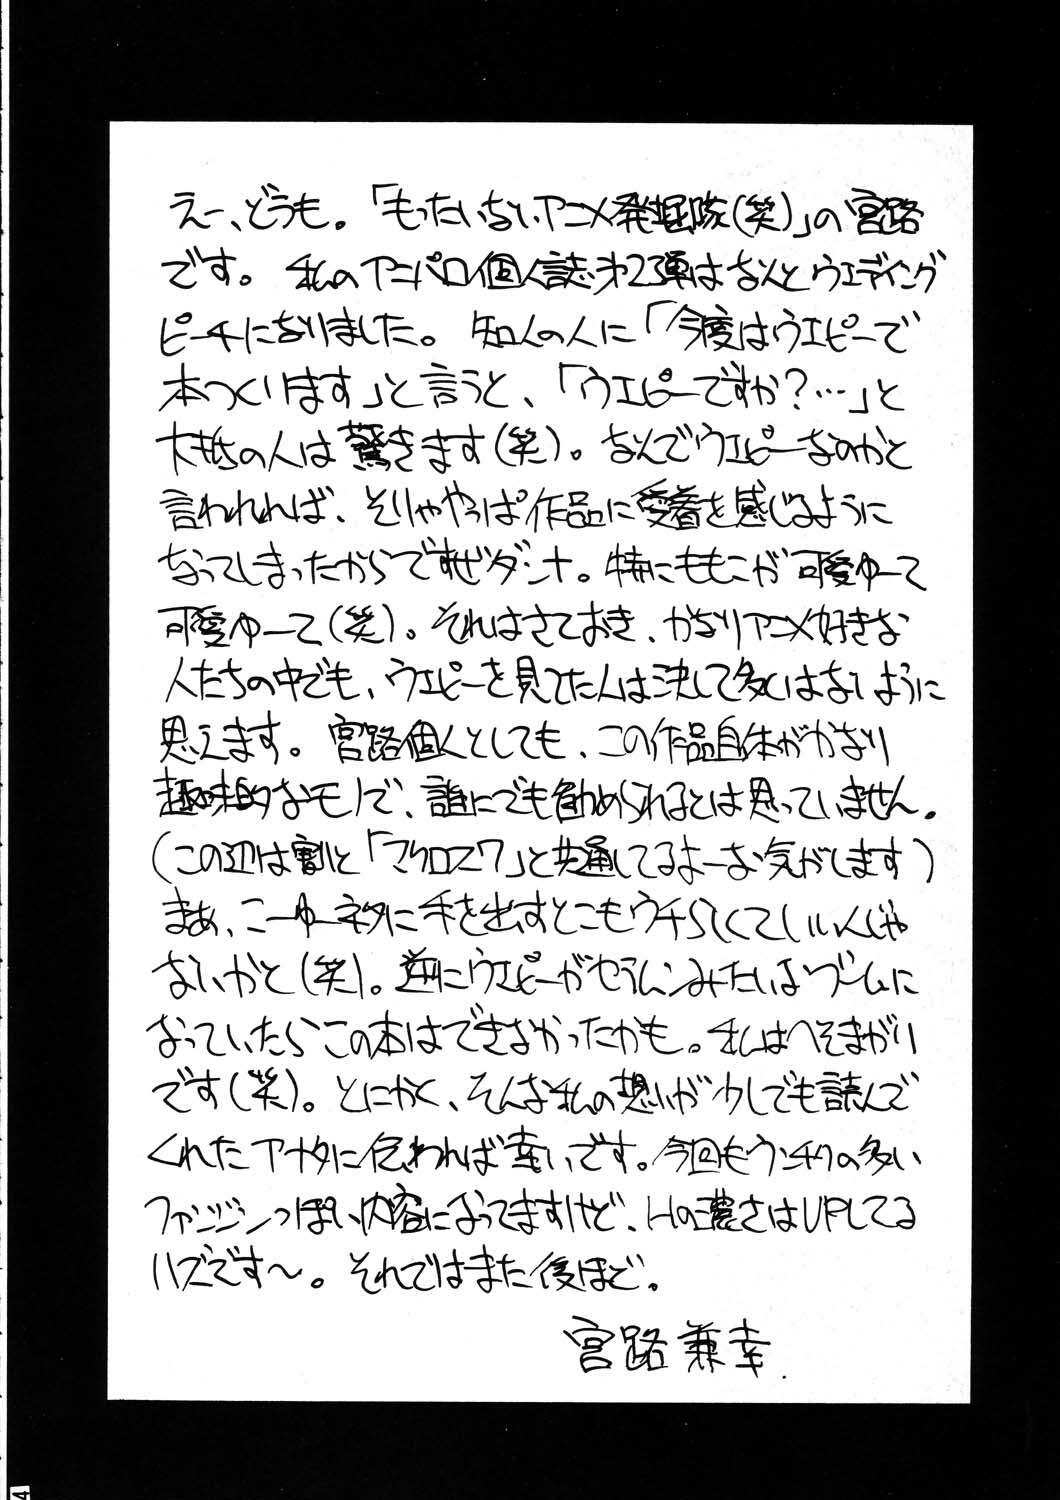 えー、どうも。「もったいないアニメ発掘隊(笑)」の宮路
です。 私のアニパロ個人誌第2弾はなんとウエディング
ピーチになりました。 知人の人に「今度はウエピーで
本つくります」と言うと、「ウエピーですか?…」と
大抵の人は驚きます(笑)。なんでウエピーなのかと
言われれば、そりゃやっぱ作品に愛着を感じるように
なってしまったからですぜダンナ。特にももこが可愛ゆーて
可愛ゆーて(笑)。それはさておき、かなりアニメ好きな
人たちの中でも、ウエピーを見てた人は決して多くはないように
思えます。 宮路個人としても、この作品自体がかなり
趣味的なモノで、誰にでも勧められるとは思っていません。
(この辺は割と「マクロス7」と共通してるよーな気がします)
まあ、こーゆーネタに手を出すとこもウチらしくていいんじゃ
ないかと(笑)。逆にウエピーがセラムンみたいなブームに
なっていたらこの本はできなかったかも。私はへそまがり
です(笑)。とにかく、そんな私の想いが少しでも読んで
くれたアナタに伝われば幸いです。今回もウンチクの多い
ファンジンっぽい内容になってますけど、Hの濃さはUPしてる
ハズです〜。それではまた後ほど。
宮路兼幸.
4